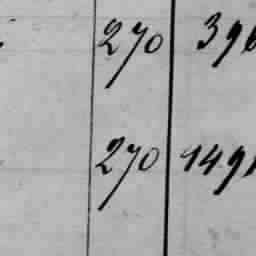 270 396
270 1491